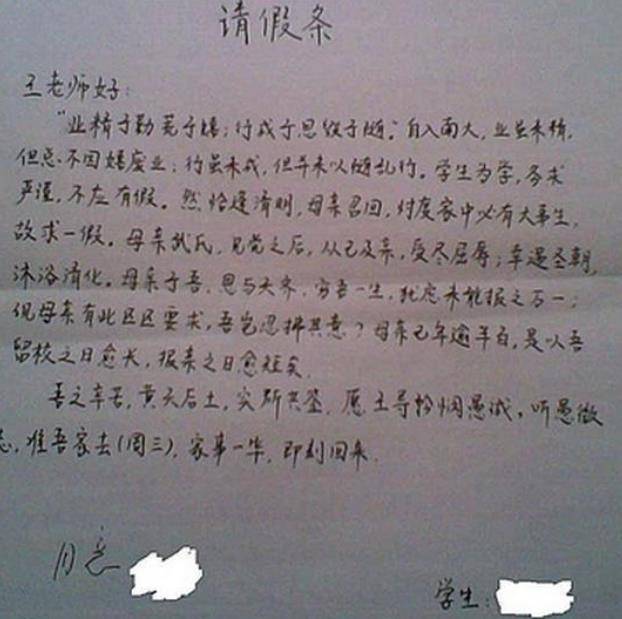 请假条
王老师好:
"业精于勤荒于嬉;行成于思毁于随"。自入南大,业虽未精,
但忘不因嬉废业;行虽未成,但并未以随乱行。学生为学,务求
严谨,不应有假。然恰逢清明,母亲召回,忖度家中必有大事生,
故求一假。母亲武氏,见党之后,从己及亲,受尽屈辱;幸遇圣朝,
沐浴清化。母亲于吾,恩与天齐,穷吾一生,犹恐未能报之万一;
况母亲有此区区要求,吾岂忍拂其意?母亲已年逾半百,是以吾
留校之日愈长,报亲之日愈短矣.
吾之辛苦,黄天后土,实所共鉴,愿王导怜悯愚诚,听愚微
志,准吾家去(周三),家事一毕,即刻回来.
同意
学生: